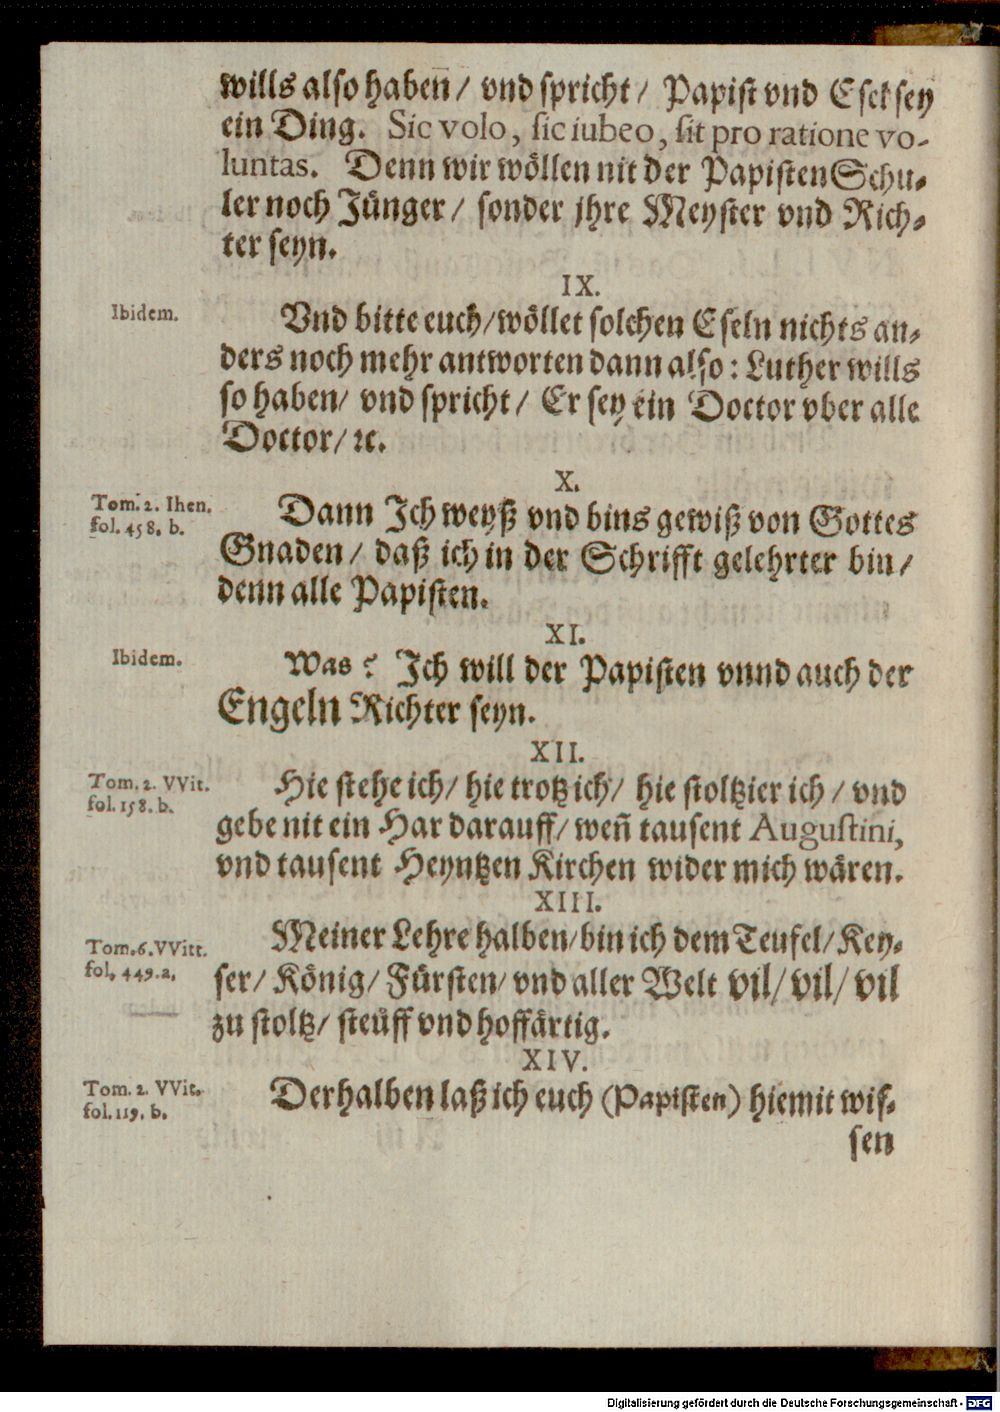 wills also habeñ / vnd spricht / Papist vnd Esel sey
ein Ding. Sic volo, sic iubeo, sit pro ratione vo-
luntas. Denn wir wöllen nit der Papisten Schu-
ler noch Jünger / sonder jhre Meyster vnd Rich-
ter seyn.
IX.
Ibidem.
Vnd bitte euch/wöllet solchen Eseln nichts an-
ders noch mehr antworten dann also : Luther wills
so haben/ vnd spricht / Er sey ein Doctor vber alle
Doctor/ ꝛc.
X.
Tom. 2. Ihen.
fol. 458. b.
Dann Ich weyß vnd bins gewiß von Gottes
Gnaden / daß ich in der Schrifft gelehrter bin /
denn alle Papisten.
XI.
Ibidem.
Was ? Ich will der Papisten vnnd auch der
Engeln Richter seyn.
XII.
Tom. 2. VVit.
fol. 158. b.
Hie stehe ich/ hie trotz ich/ hie stoltzier ich / vnd
gebe nit ein Har darauff/ weñ tausent Augustini,
vnd tausent Heyntzen Kirchen wider mich wären.
XIII.
Tom. 6. VVitt.
fol. 449. a.
Meiner Lehre halben/bin ich dem Teufel/ Key-
ser/ König/ Fürsten/ vnd aller Welt vil/ vil/ vil
zu stoltz/ steüff vnd hoffärtig.
XIV.
Tom. 2. VVit.
fol. 119. b.
Derhalben laß ich euch (Papisten) hiemit wis-
sen
Digitalisierung gefördert durch die Deutsche Forschungsgemeinschaft - DFG